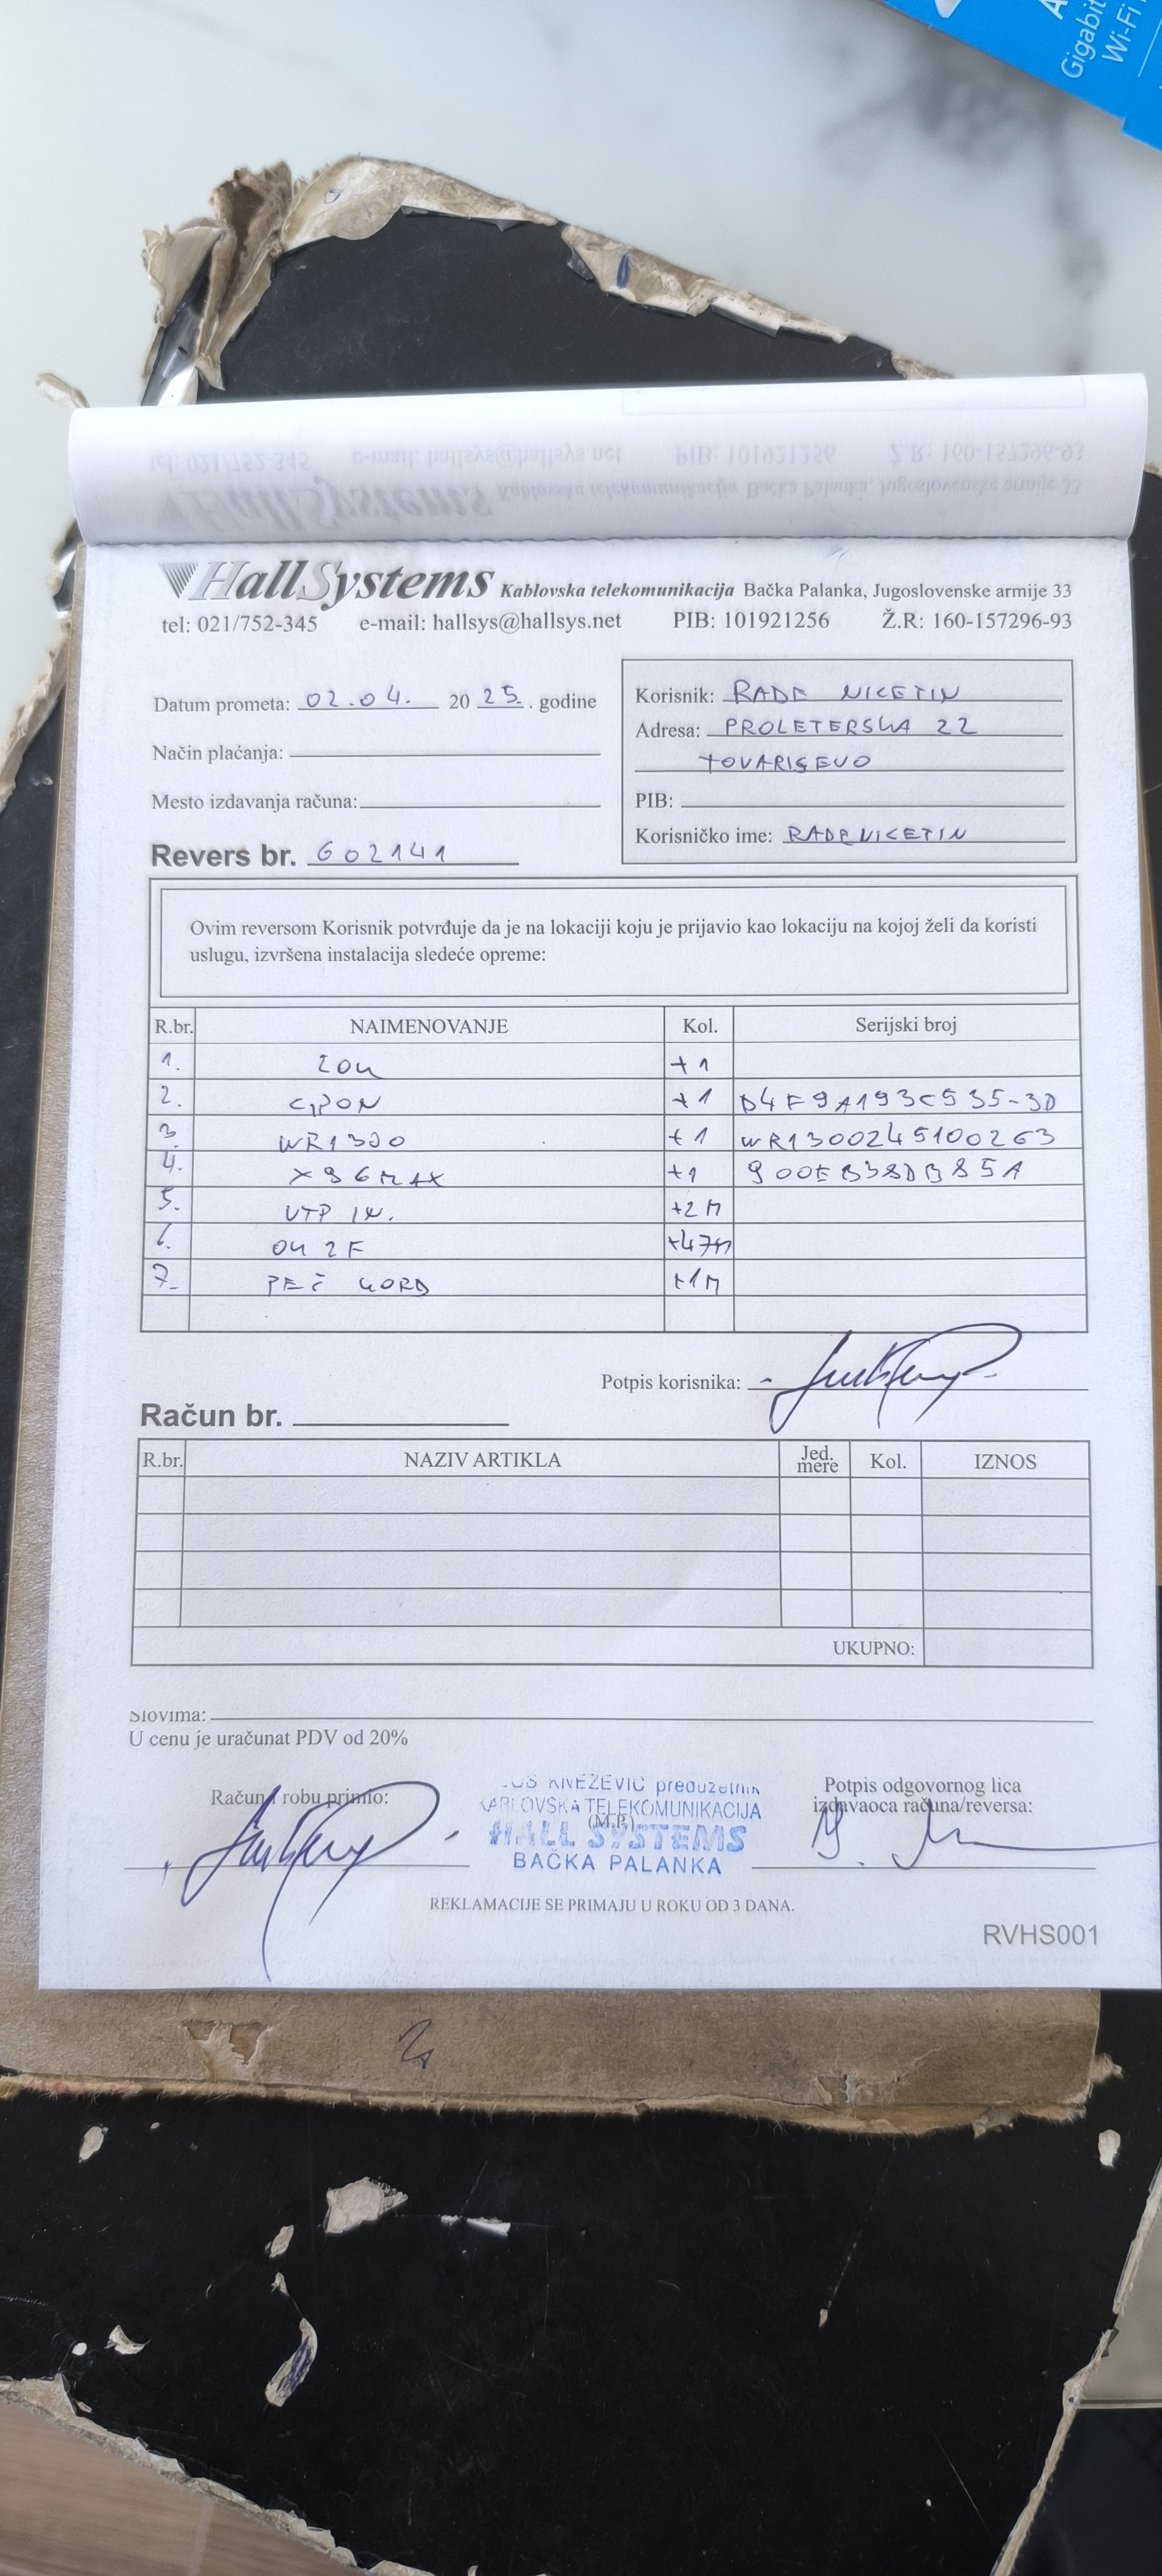 Gigabit
Wi-Fi
HallSystems Kablovska telekomunikacija Bačka Palanka, Jugoslovenske armije 33
tel: 021/752-345 e-mail: hallsys@hallsys.net PIB: 101921256 Ž.R: 160-157296-93
Datum prometa: 02.04. 20 25. godine
Način plaćanja:
Mesto izdavanja računa:
Korisnik: RADE NICETIN
Adresa: PROLETERSKA 22
TOVARISEVO
PIB:
Korisničko ime: RADENICETIN
Revers br. 602141
Ovim reversom Korisnik potvrđuje da je na lokaciji koju je prijavio kao lokaciju na kojoj želi da koristi
uslugu, izvršena instalacija sledeće opreme:
R.br. NAIMENOVANJE Kol. Serijski broj
1. ZOK +1
2. GPON +1 D4F9A193C535-3D
3. WR1300 +1 WR1300245100263
4. X96MAX +1 900EB38DB85A
5. UTP IK. +2M
6. OK 2F +47M
7. PEČ KORD +1M
Potpis korisnika:
Račun br.
R.br. NAZIV ARTIKLA Jed. mere Kol. IZNOS
UKUPNO:
Slovima:
U cenu je uračunat PDV od 20%
Račun i robu primio:
KNEŽEVIĆ preduzetnik
KABLOVSKA TELEKOMUNIKACIJA
(M.P.)
HALL SYSTEMS
BAČKA PALANKA
Potpis odgovornog lica
izdavaoca računa/reversa:
REKLAMACIJE SE PRIMAJU U ROKU OD 3 DANA.
RVHS001